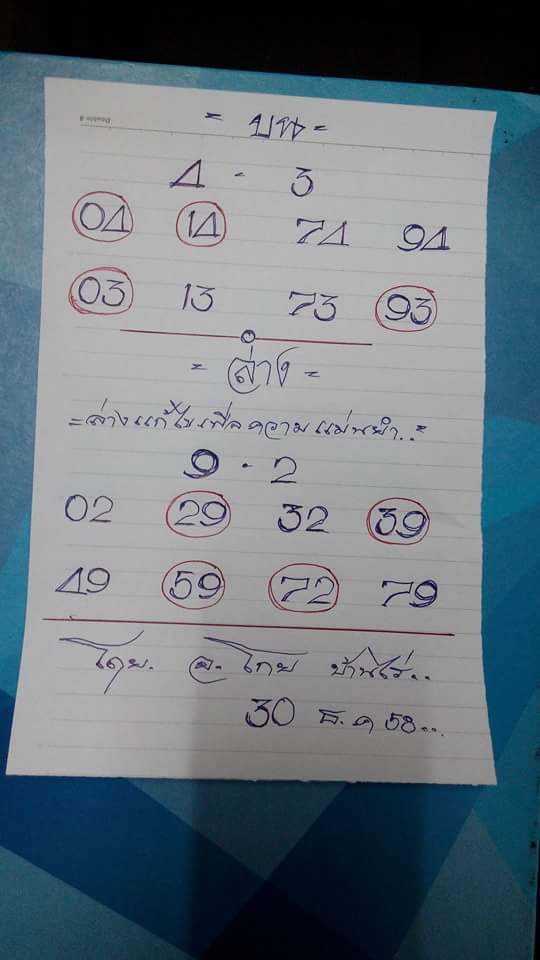 = บน =
4 - 3
04 14 74 94
03 13 73 93
= ล่าง =
= ล่างแก้ไขเพื่อความแม่นยำ.. =
9 - 2
02 29 32 39
49 59 72 79
โดย. อ. ไทย บ้านไร่..
30 ธ.ค 58...
Double A